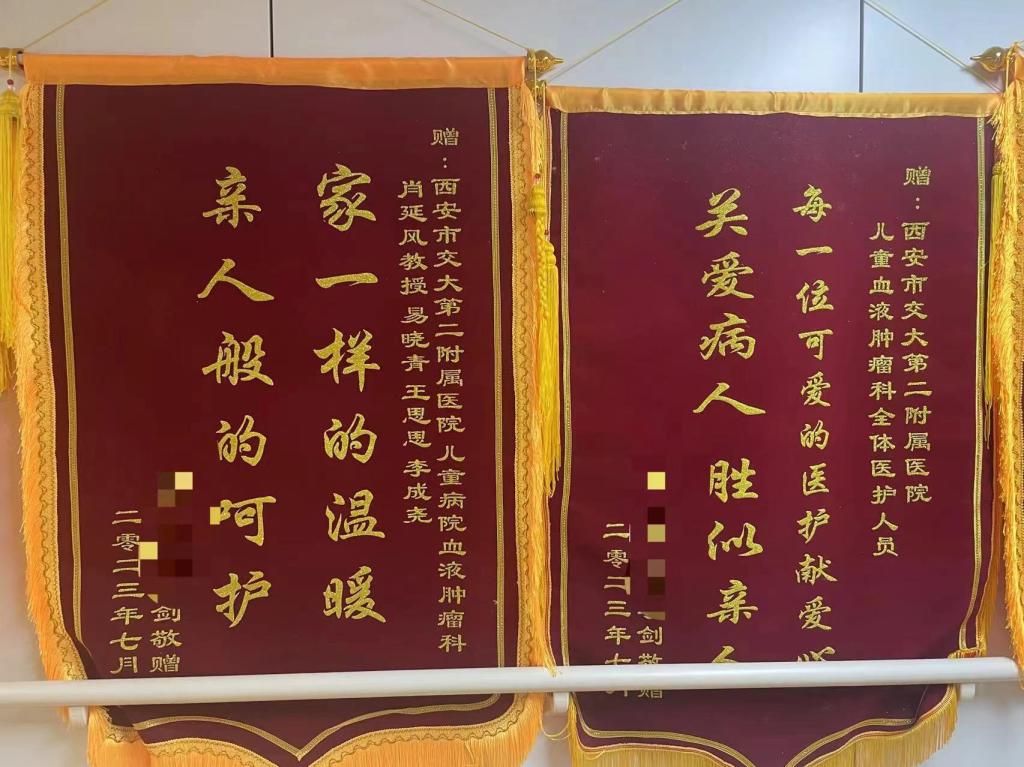 赠：西安市交大第二附属医院儿童病院血液肿瘤科
肖延风教授易晓青王思思李成尧
家一样的温暖
亲人般的呵护
剑敬赠
二零二三年七月
赠：西安市交大第二附属医院
儿童血液肿瘤科全体医护人员
每一位可爱的医护献爱心
关爱病人胜似亲人
剑敬赠
二零二三年七月